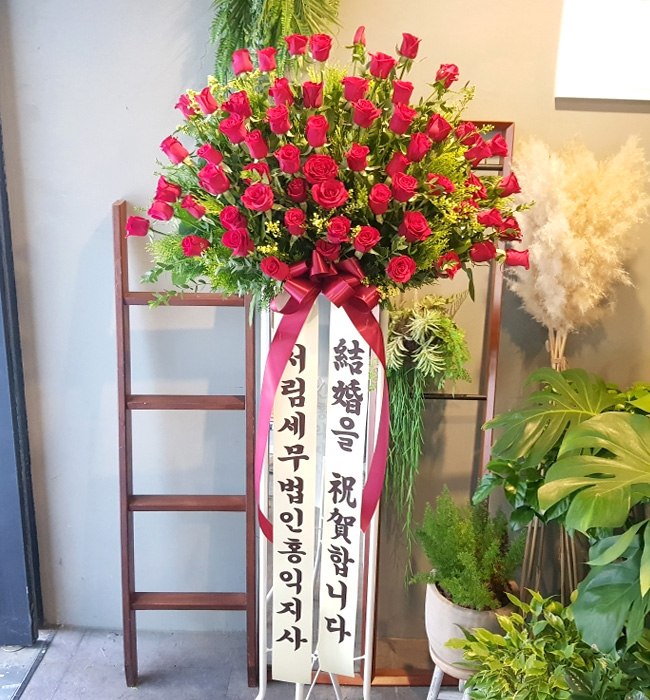 結婚을 祝賀합니다
서림세무법인홍익지사